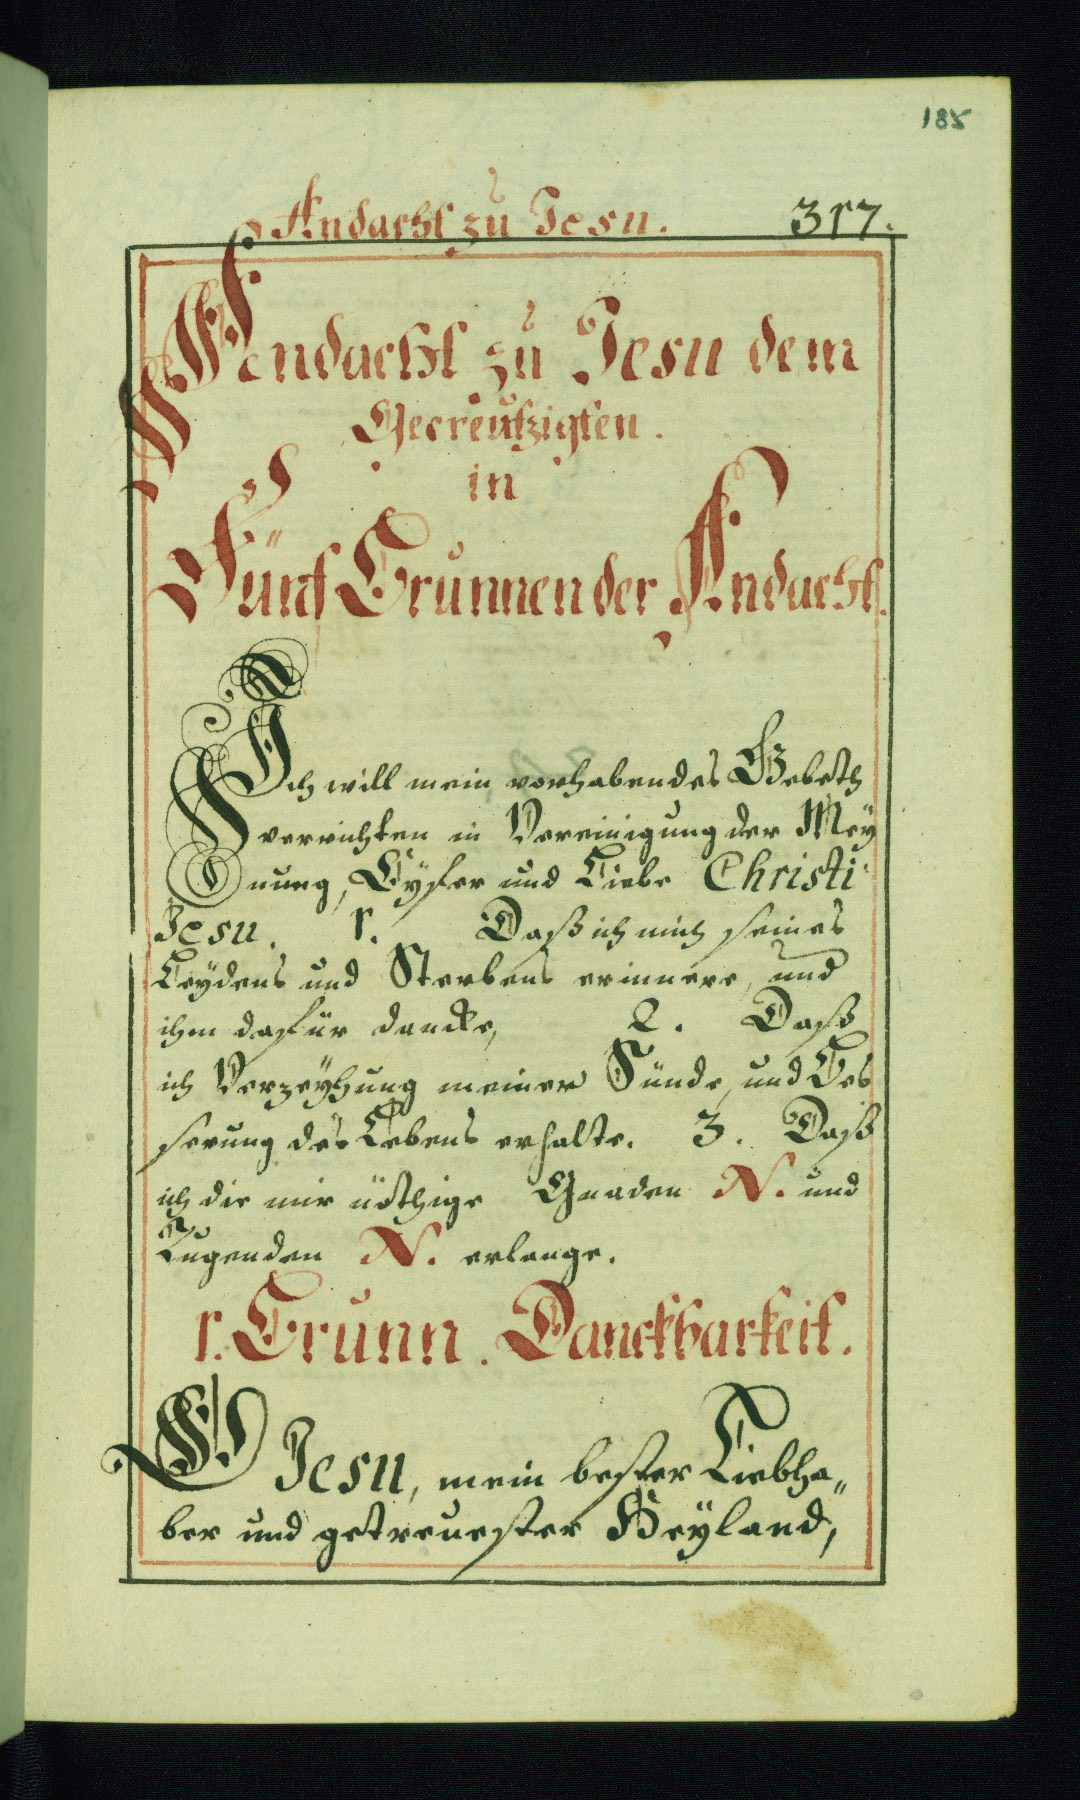 185
Andacht zu Jesu. 317.
Andacht zu Jesu dem
Gecreutzigten.
in
Fünf Brunnen der Andacht.
Ich will mein vorhabendes Gebeth
verrichten in Vereinigung der Mey
nung, Eyfer und Liebe Christi
Jesu. 1. Daß ich mich seines
Leydens und Sterbens erinnere, und
ihm dafür dancke, 2. Daß
ich Verzeyhung meiner Sünde, und Bes
serung des Lebens erhalte. 3. Daß
ich die mir nöthige Gnaden N. und
Tugenden N. erlange.
1. Brunn. Danckbarkeit.
O Jesu, mein bester Liebha„
ber und getreuester Heyland,